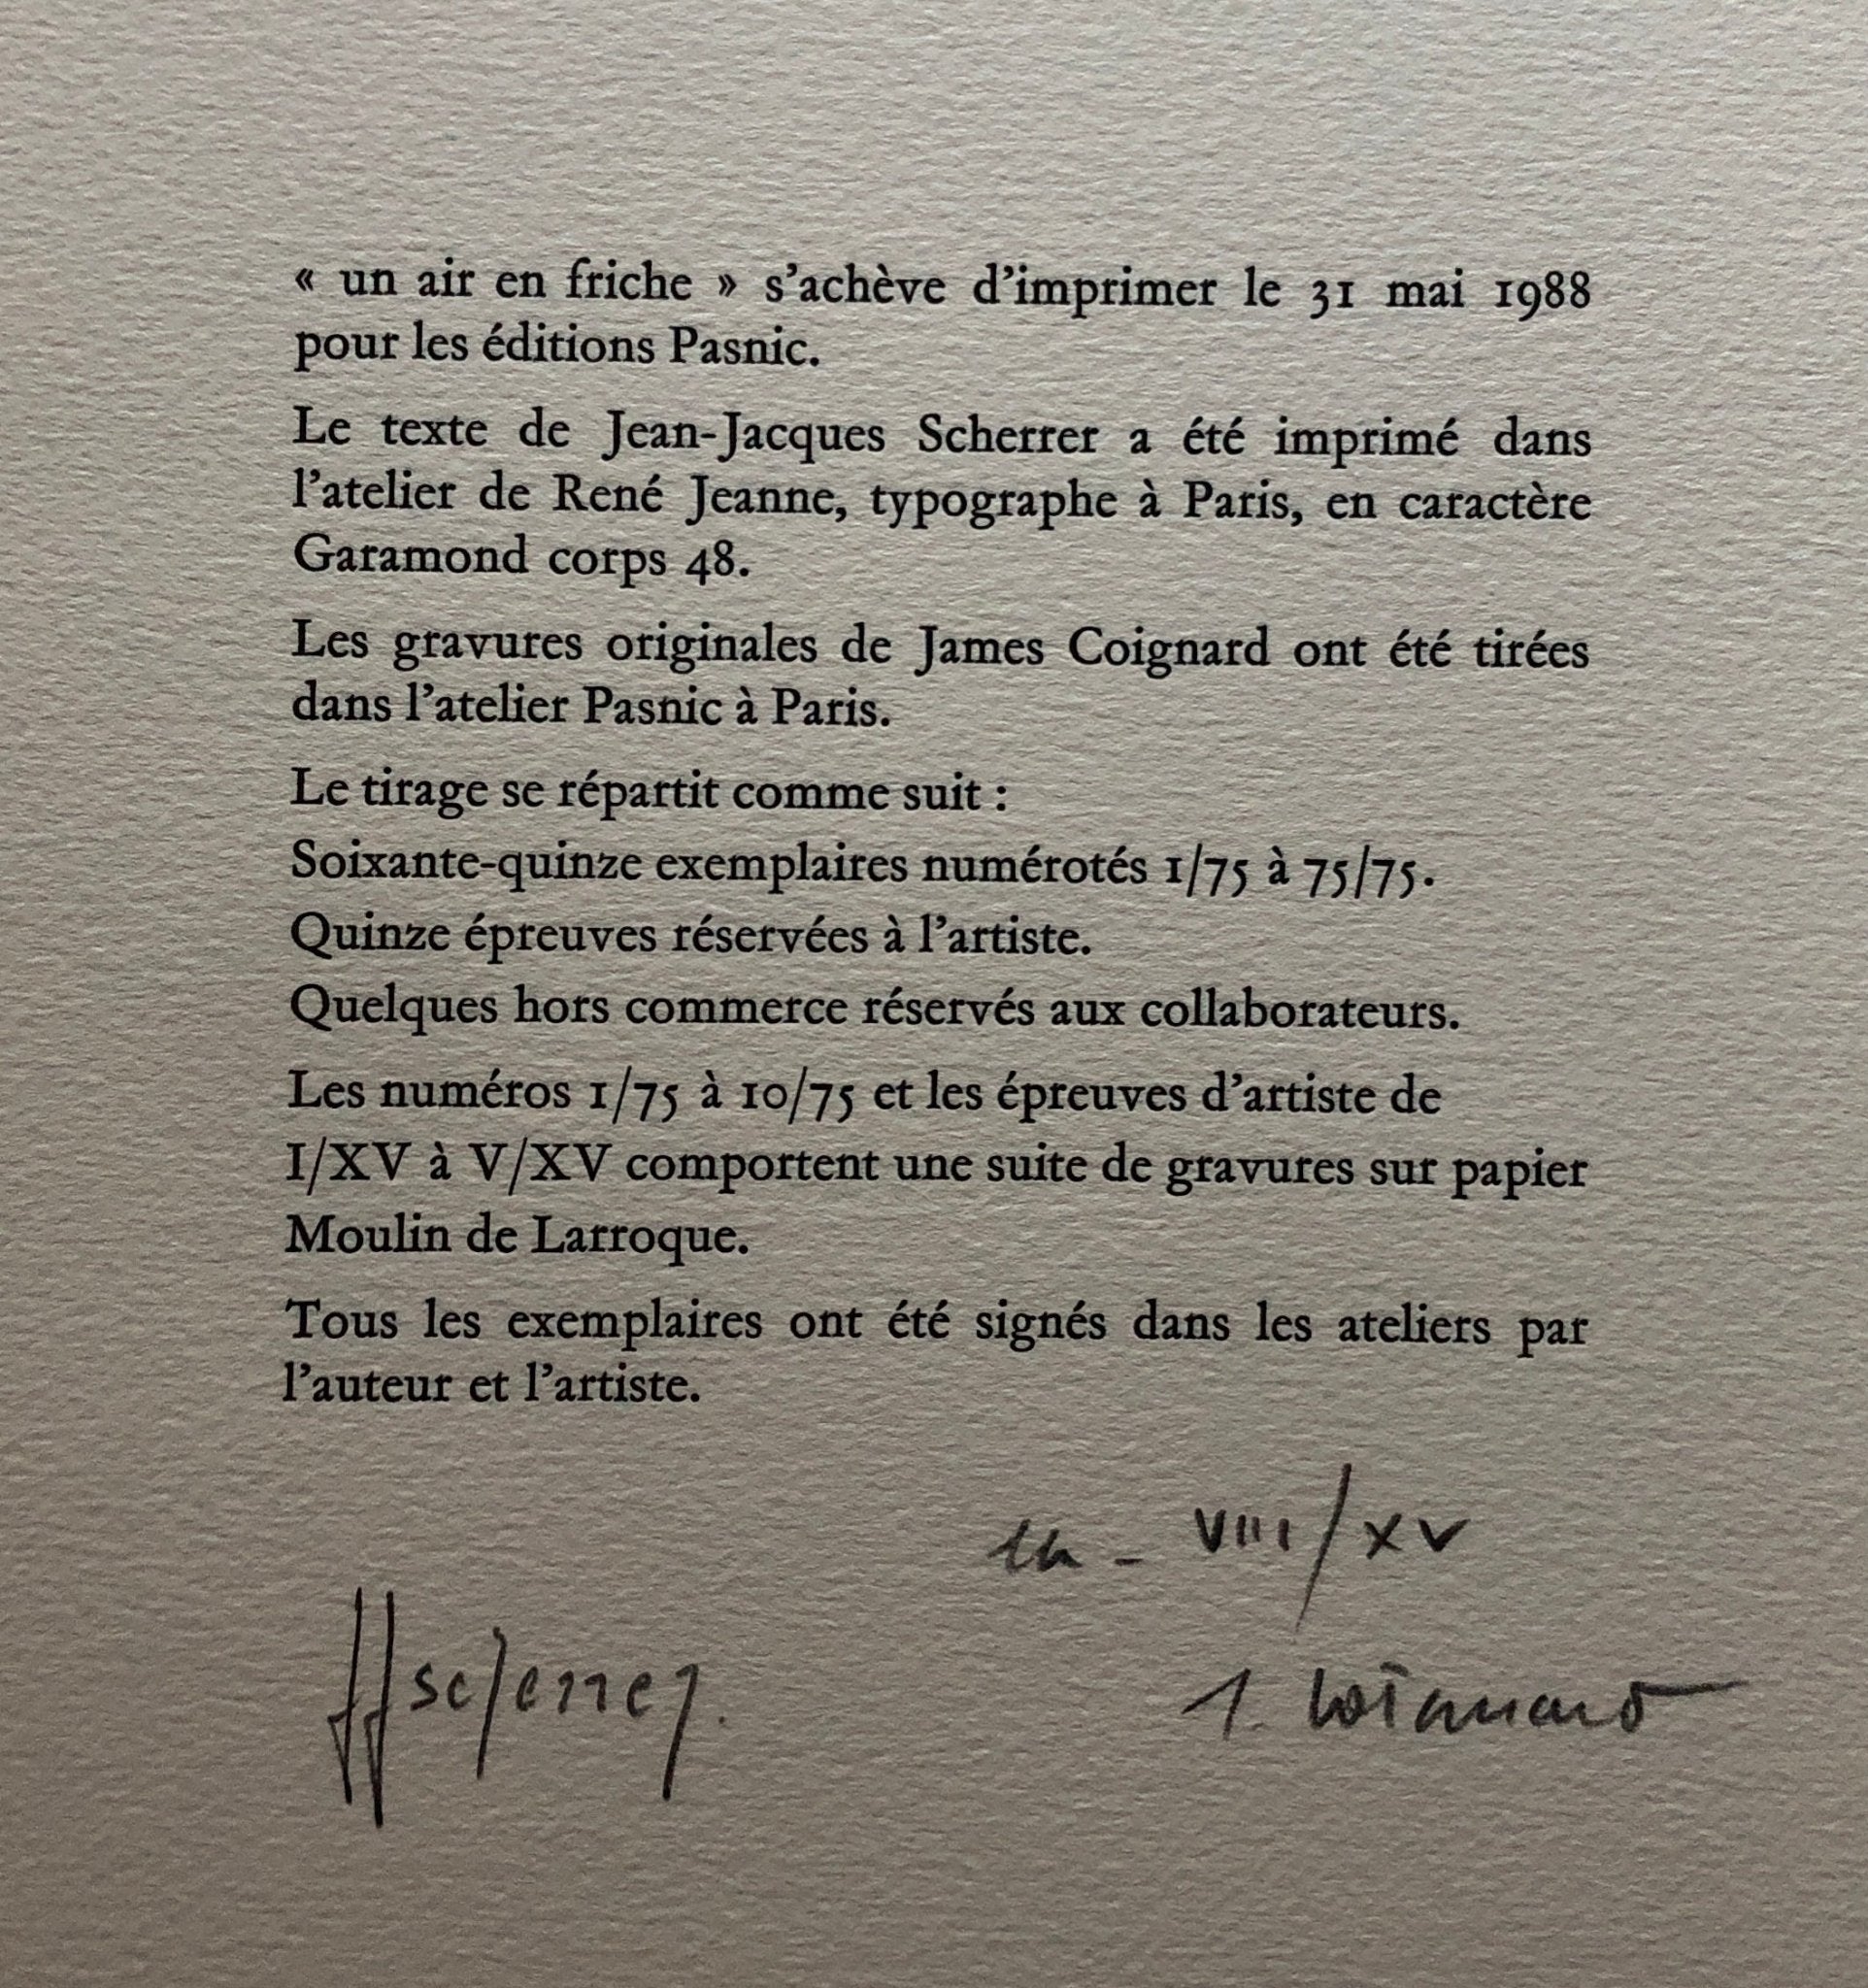 « un air en friche » s’achève d’imprimer le 31 mai 1988
pour les éditions Pasnic.
Le texte de Jean-Jacques Scherrer a été imprimé dans
l’atelier de René Jeanne, typographe à Paris, en caractère
Garamond corps 48.
Les gravures originales de James Coignard ont été tirées
dans l’atelier Pasnic à Paris.
Le tirage se répartit comme suit :
Soixante-quinze exemplaires numérotés 1/75 à 75/75.
Quinze épreuves réservées à l’artiste.
Quelques hors commerce réservés aux collaborateurs.
Les numéros 1/75 à 10/75 et les épreuves d’artiste de
I/XV à V/XV comportent une suite de gravures sur papier
Moulin de Larroque.
Tous les exemplaires ont été signés dans les ateliers par
l’auteur et l’artiste.
VIII/XV
JJ Scherrer.
J. Coignard